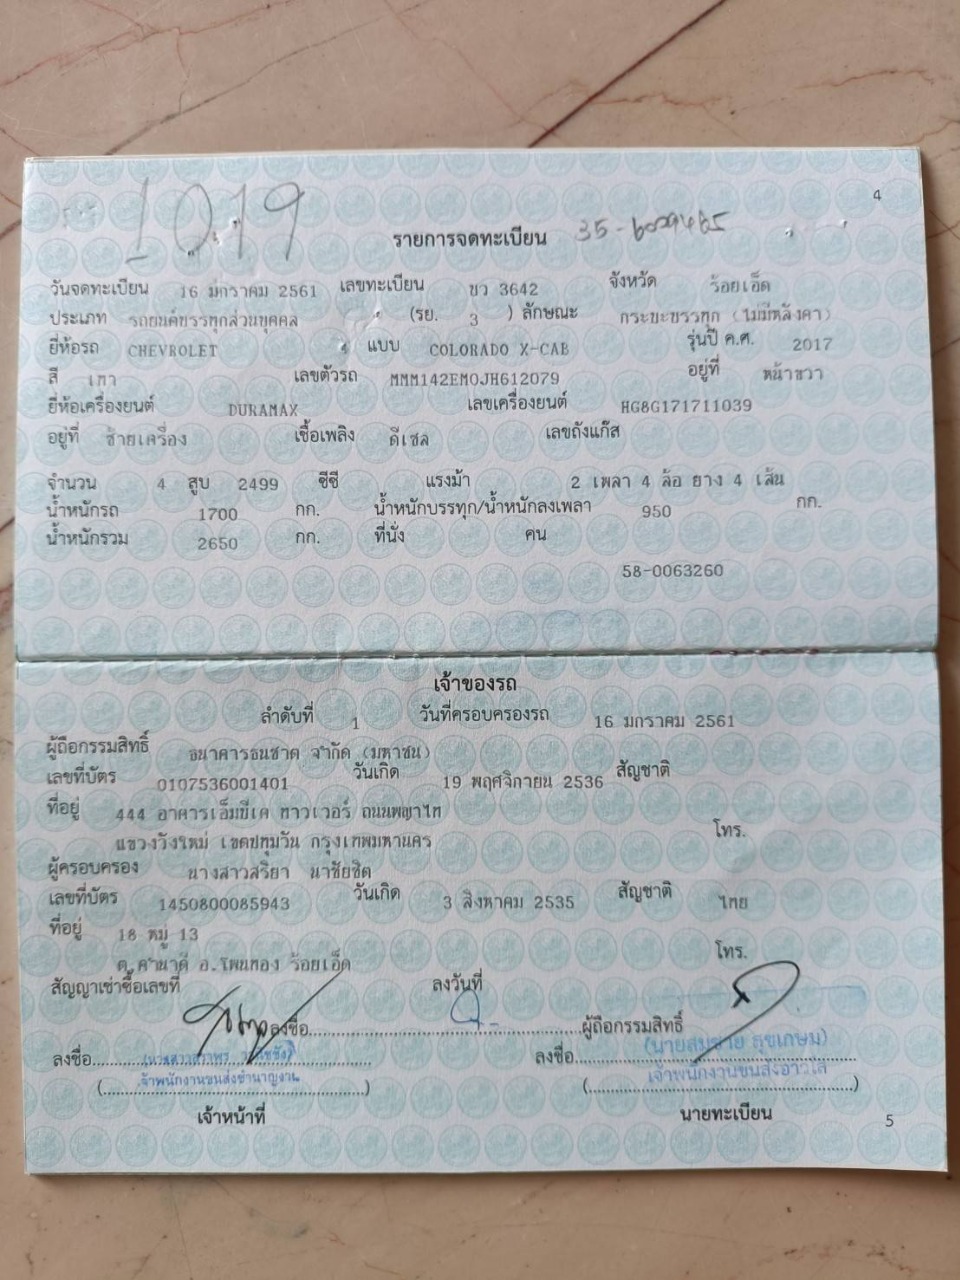 4
1019
รายการจดทะเบียน 35-6009465
วันจดทะเบียน 16 มกราคม 2561 เลขทะเบียน ขว 3642 จังหวัด ร้อยเอ็ด
ประเภท รถยนต์บรรทุกส่วนบุคคล (รย. 3 ) ลักษณะ กระบะบรรทุก (ไม่มีหลังคา)
ยี่ห้อรถ CHEVROLET แบบ COLORADO X-CAB รุ่นปี ค.ศ. 2017
สี เทา เลขตัวรถ MMM142EM0JH612079 อยู่ที่ หน้าขวา
ยี่ห้อเครื่องยนต์ DURAMAX เลขเครื่องยนต์ HG8G171711039
อยู่ที่ ซ้ายเครื่อง เชื้อเพลิง ดีเซล เลขถังแก๊ส
จำนวน 4 สูบ 2499 ซีซี แรงม้า 2 เพลา 4 ล้อ ยาง 4 เส้น
น้ำหนักรถ 1700 กก. น้ำหนักบรรทุก/น้ำหนักลงเพลา 950 กก.
น้ำหนักรวม 2650 กก. ที่นั่ง คน
58-0063260
เจ้าของรถ
ลำดับที่ 1 วันที่ครอบครองรถ 16 มกราคม 2561
ผู้ถือกรรมสิทธิ์ ธนาคารธนชาต จำกัด (มหาชน)
เลขที่บัตร 0107536001401 วันเกิด 19 พฤศจิกายน 2536 สัญชาติ
ที่อยู่ 444 อาคารเอ็มบีเค ทาวเวอร์ ถนนพญาไท
แขวงวังใหม่ เขตปทุมวัน กรุงเทพมหานคร โทร.
ผู้ครอบครอง นางสาวสริยา นาชัยชิต
เลขที่บัตร 1450800085943 วันเกิด 3 สิงหาคม 2535 สัญชาติ ไทย
ที่อยู่ 18 หมู่ 13
ต.คำนาดี อ.โพนทอง ร้อยเอ็ด โทร.
สัญญาเช่าซื้อเลขที่ ลงวันที่
ลงชื่อ ผู้ถือกรรมสิทธิ์
ลงชื่อ ลงชื่อ (นายสมชาย สุขเกษม)
เจ้าพนักงานขนส่งชำนาญงาน เจ้าพนักงานขนส่งอาวุโส
เจ้าหน้าที่ นายทะเบียน
5